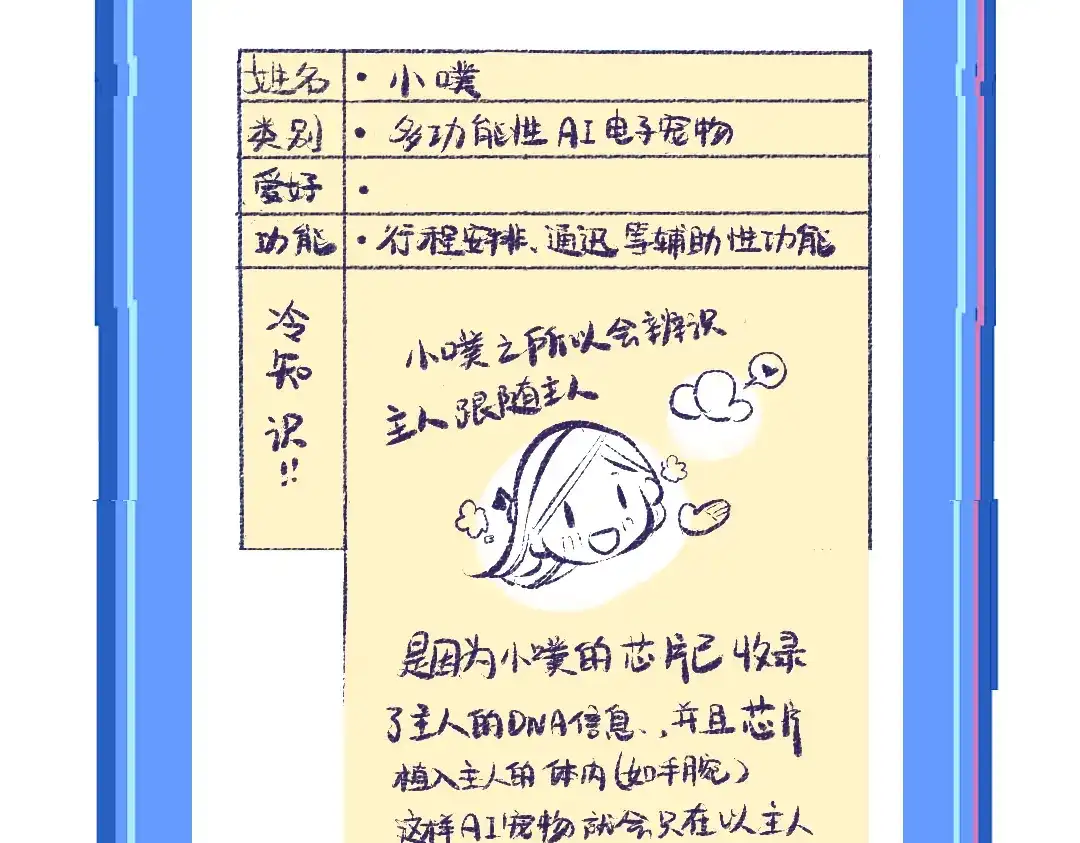 姓名 · 小噗
类别 · 多功能性AI电子宠物
爱好 ·
功能 · 行程安排、通迅等辅助性功能
冷知识!!
小噗之所以会辨识
主人跟随主人
是因为小噗的芯片已收录
了主人的DNA信息、,并且芯片
植入主人的体内(如手腕)
这样AI宠物就会只在以主人